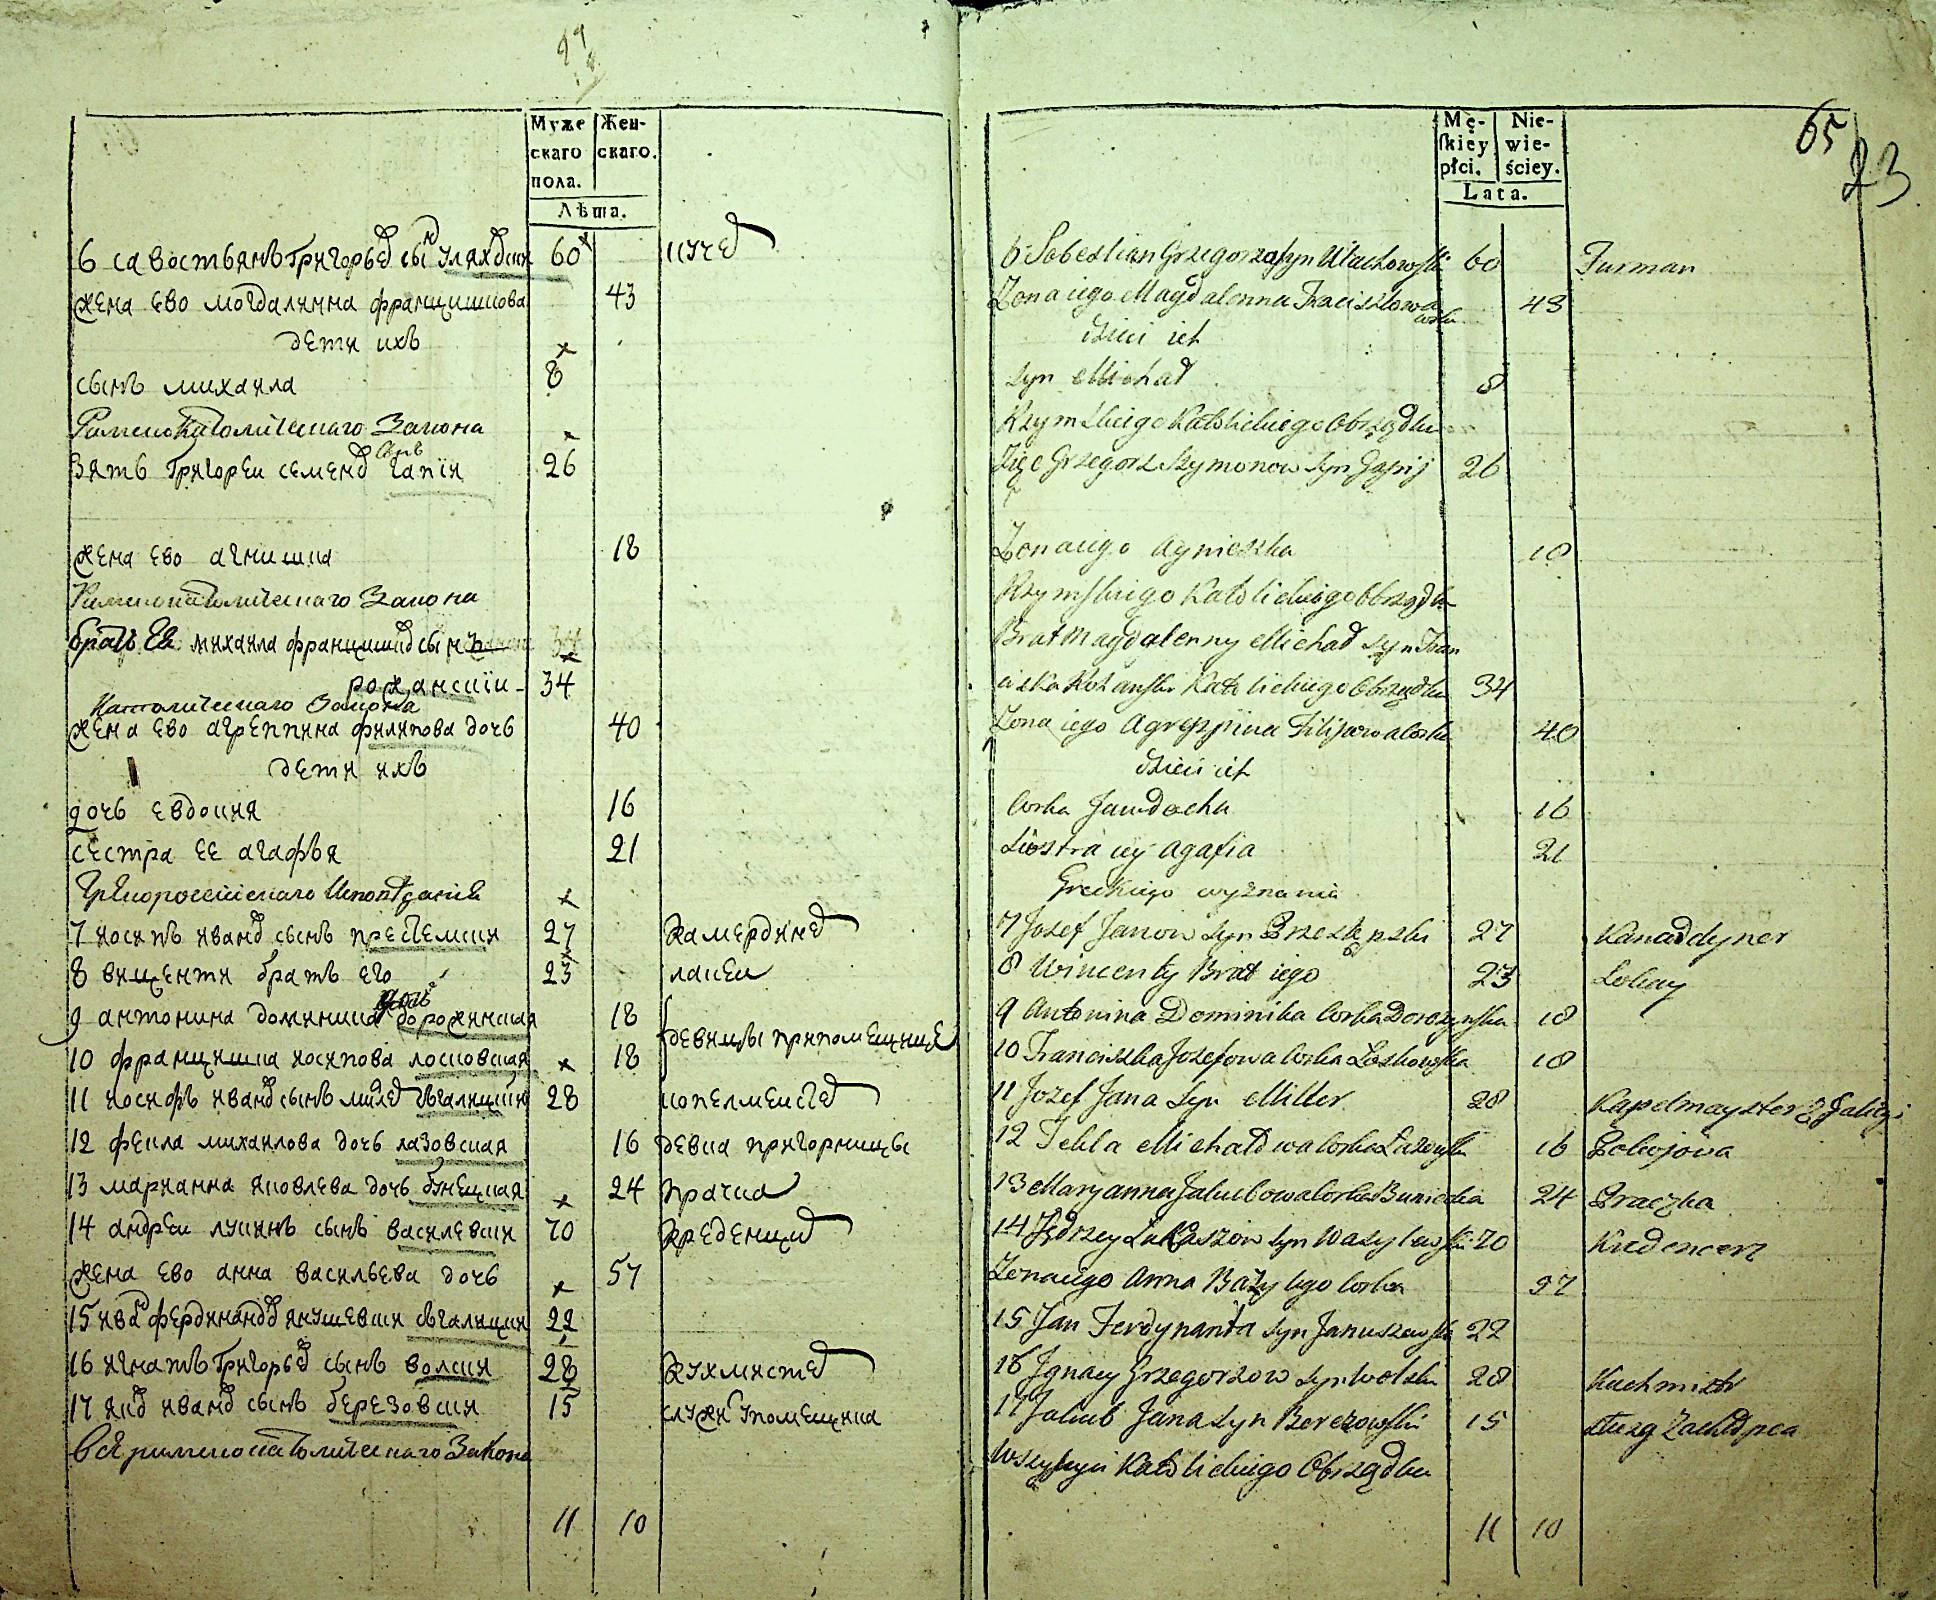 Муже скаго пола.
Женскаго.
Лѣта.
6 савостьянъ григорьев сын уляховский 60 кучер
жена ево могдалинна францишкова 43
дети ихъ
сынъ михаила 8
Римскокатолическаго Закона
зять григореи семенов сынъ гапїй 26
жена ево агнишка 18
Римскокатолическаго Закона
братъ Ее михаила францишков сынъ
рожанскїи 34
Католическаго Закона
жена ево агреппина филипова дочь 40
дети ихъ
дочь евдокия 16
сестра ее агафья 21
Грекороссийскаго Исповедания
7 иосипъ иванов сынъ 27 камердинер
8 вицента братъ его 23 лакеи
9 антонина доминика дочь дорожинская 18
девицы при помещице
10 францишка иосипова лосковская 18
11 иосифъ иванов сынъ милер изъ галиции 28 копелмейстер
12 фекла михаилова дочь лазовская 16 девка при горницы
13 марианна яковлева дочь бунецкая 24 прачка
14 андреи лукинъ сынъ василевски 70 креденцир
жена ево анна васильева дочь 57
15 иван фердинандов янушевски изъ галиции 22
16 игнатъ григорьев сынъ волски 28 кухмистер
17 яков иванов сынъ березовски 15 служи у помещика
Все римскокатолическаго Закона
11 10
65
23
Mę-ſkiey płci.
Nie-wie-ściey.
Lata.
6 Sebestian Grzegorza syn Ulachowſki 60 Furman
Zona iego Magdalenna Franciszkowa corka 43
dzieci ich
syn Michał 8
Rzymſkiego Katolickiego Obrządku
Zięć Grzegorz Szymonow syn Gapij 26
Zona iego Agnieszka 18
Rzymſkiego Katolickiego Obrządku
Brat Magdalenny Michał syn Fran
ciszka Rożanſki Katolickiego Obrządku 34
Zona iego Agreppina Filipowa Corka 40
dzieci ich
Corka Jawdocha 16
Siostra iey Agafia 21
Greckiego wyznania
7 Jozef Janow syn 27 Kamaddyner
8 Wincenty Brat iego 23 Lokay
9 Antonina Dominika Corka Dorożynſka 18
10 Franciszka Jozefowa Corka Loskowſka 18
11 Jozef Jana syn Miller 28 Kapelmayster z Galicyi
12 Tekla Michałowa Corka Łazowſka 16 Pokojowa
13 Maryanna Jakubowa Corka Buniecka 24 Praczka
14 Jędrzey Łukaszow syn Wasylewſki 70 Kredencerz
Zona iego Anna Bazylego Corka 57
15 Jan Ferdynanta syn Januszewſki 22
16 Jgnacy Grzegorzow syn Wolski 28 Kuchmistr
17 Jakub Jana syn Berezowſki 15
Wszyscy Katolickiego Obrządku
11 10